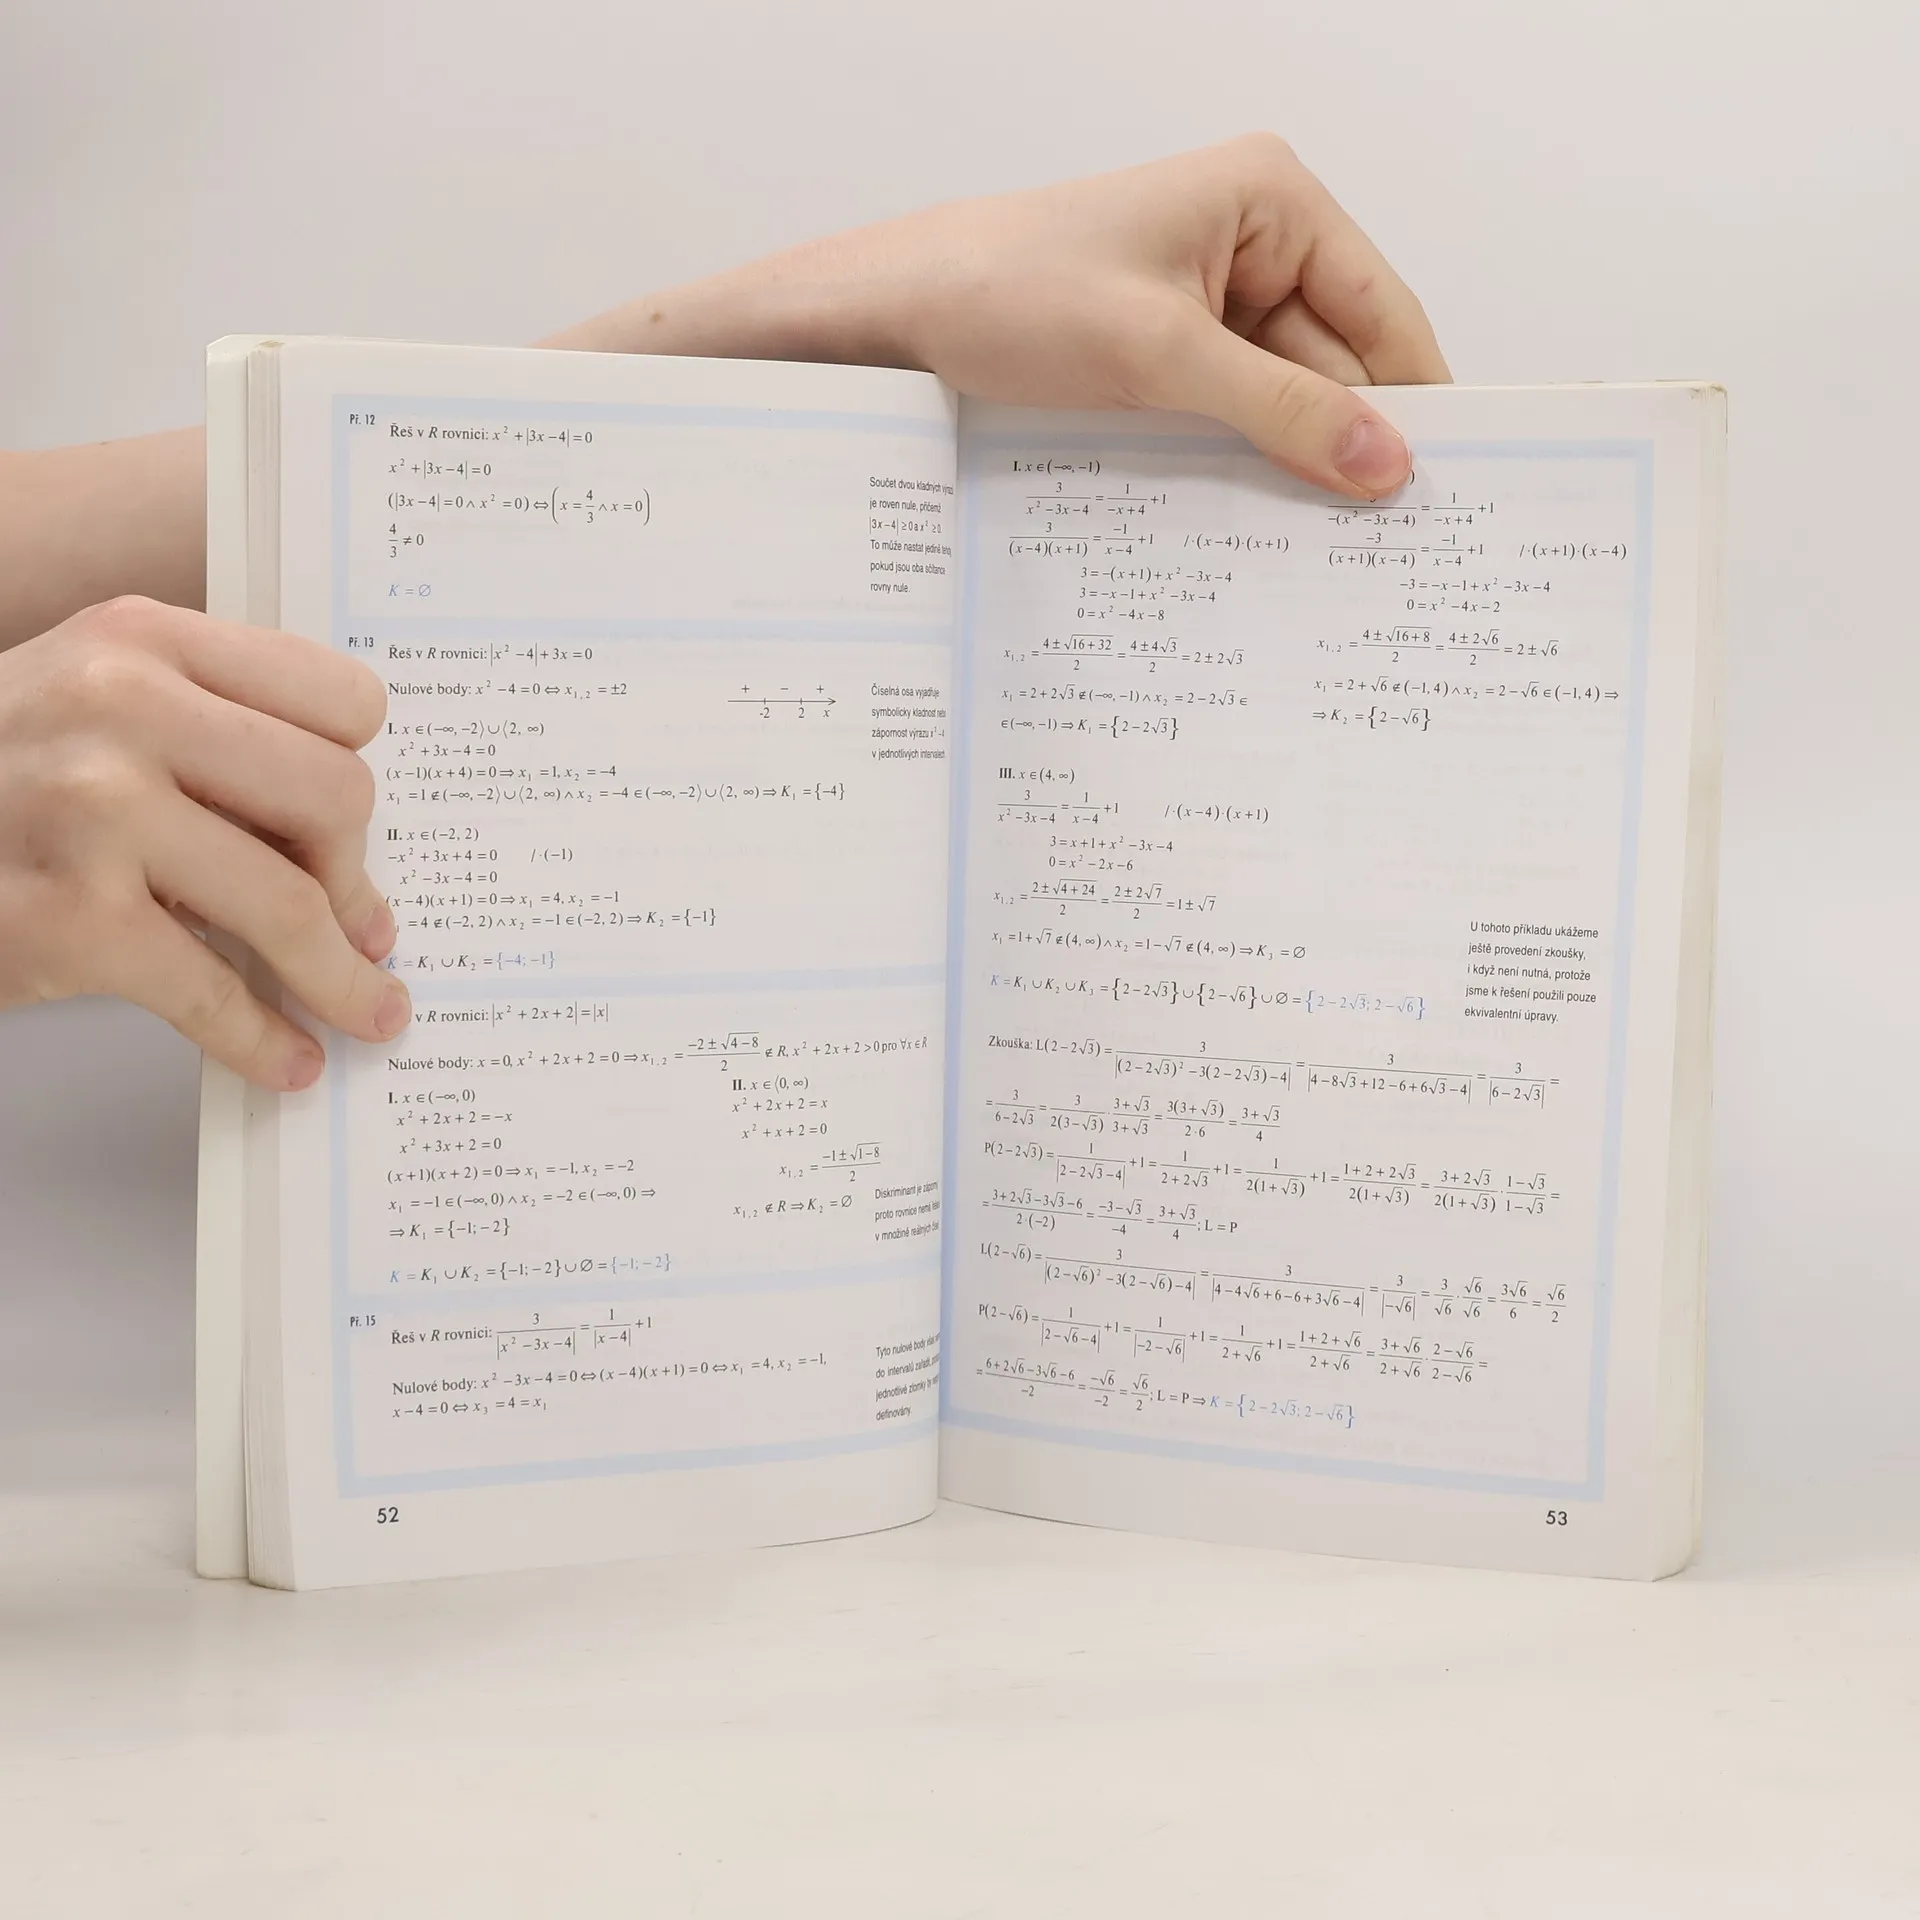 Př. 12
Řeš v R rovnici: x² + |3x − 4| = 0
x² + |3x − 4| = 0
(|3x − 4| = 0 ∧ x² = 0) ⇔ (x = 4/3 ∧ x = 0)
4/3 ≠ 0
K = ∅
Součet dvou kladných
je roven nule, přičemž
|3x − 4| ≥ 0 a x² ≥ 0.
To může nastat jedině
pokud jsou oba sčítance
rovny nule.
Př. 13
Řeš v R rovnici: |x² − 4| + 3x = 0
Nulové body: x² − 4 = 0 ⇔ x₁,₂ = ±2
+ − +
-2 2 x
Číselná osa vyjadřuje
symbolicky kladnost nebo
zápornost výrazu x² − 4
v jednotlivých intervalech.
I. x ∈ (−∞, −2⟩ ∪ ⟨2, ∞)
x² + 3x − 4 = 0
(x − 1)(x + 4) = 0 ⇒ x₁ = 1, x₂ = −4
x₁ = 1 ∉ (−∞, −2⟩ ∪ ⟨2, ∞) ∧ x₂ = −4 ∈ (−∞, −2⟩ ∪ ⟨2, ∞) ⇒ K₁ = {−4}
II. x ∈ (−2, 2)
−x² + 3x + 4 = 0 /·(−1)
x² − 3x − 4 = 0
(x − 4)(x + 1) = 0 ⇒ x₁ = 4, x₂ = −1
₁ = 4 ∉ (−2, 2) ∧ x₂ = −1 ∈ (−2, 2) ⇒ K₂ = {−1}
K = K₁ ∪ K₂ = {−4; −1}
v R rovnici: |x² + 2x + 2| = |x|
Nulové body: x = 0, x² + 2x + 2 = 0 ⇒ x₁,₂ = (−2 ± √(4 − 8))/2 ∉ R, x² + 2x + 2 > 0 pro ∀x ∈ R
I. x ∈ (−∞, 0)
x² + 2x + 2 = −x
x² + 3x + 2 = 0
(x + 1)(x + 2) = 0 ⇒ x₁ = −1, x₂ = −2
x₁ = −1 ∈ (−∞, 0) ∧ x₂ = −2 ∈ (−∞, 0) ⇒
⇒ K₁ = {−1; −2}
II. x ∈ ⟨0, ∞)
x² + 2x + 2 = x
x² + x + 2 = 0
x₁,₂ = (−1 ± √(1 − 8))/2
x₁,₂ ∉ R ⇒ K₂ = ∅
Diskriminant je záporný
proto rovnice nemá
v množině reálných
K = K₁ ∪ K₂ = {−1; −2} ∪ ∅ = {−1; −2}
Př. 15
Řeš v R rovnici: 3/|x² − 3x − 4| = 1/|x − 4| + 1
Nulové body: x² − 3x − 4 = 0 ⇔ (x − 4)(x + 1) = 0 ⇔ x₁ = 4, x₂ = −1,
x − 4 = 0 ⇔ x₃ = 4 = x₁
Tyto nulové body
do intervalů
jednotlivé zlomky
definovány.
52
I. x ∈ (−∞, −1)
3/(x² − 3x − 4) = 1/(−x + 4) + 1
3/((x − 4)(x + 1)) = −1/(x − 4) + 1 /·(x − 4)·(x + 1)
3 = −(x + 1) + x² − 3x − 4
3 = −x − 1 + x² − 3x − 4
0 = x² − 4x − 8
x₁,₂ = (4 ± √(16 + 32))/2 = (4 ± 4√3)/2 = 2 ± 2√3
x₁ = 2 + 2√3 ∉ (−∞, −1) ∧ x₂ = 2 − 2√3 ∈
∈ (−∞, −1) ⇒ K₁ = {2 − 2√3}
)
3/(−(x² − 3x − 4)) = 1/(−x + 4) + 1
−3/((x + 1)(x − 4)) = −1/(x − 4) + 1 /·(x + 1)·(x − 4)
−3 = −x − 1 + x² − 3x − 4
0 = x² − 4x − 2
x₁,₂ = (4 ± √(16 + 8))/2 = (4 ± 2√6)/2 = 2 ± √6
x₁ = 2 + √6 ∉ (−1, 4) ∧ x₂ = 2 − √6 ∈ (−1, 4) ⇒
⇒ K₂ = {2 − √6}
III. x ∈ (4, ∞)
3/(x² − 3x − 4) = 1/(x − 4) + 1 /·(x − 4)·(x + 1)
3 = x + 1 + x² − 3x − 4
0 = x² − 2x − 6
x₁,₂ = (2 ± √(4 + 24))/2 = (2 ± 2√7)/2 = 1 ± √7
x₁ = 1 + √7 ∉ (4, ∞) ∧ x₂ = 1 − √7 ∉ (4, ∞) ⇒ K₃ = ∅
K = K₁ ∪ K₂ ∪ K₃ = {2 − 2√3} ∪ {2 − √6} ∪ ∅ = {2 − 2√3; 2 − √6}
U tohoto příkladu ukážeme
ještě provedení zkoušky,
i když není nutná, protože
jsme k řešení použili pouze
ekvivalentní úpravy.
Zkouška: L(2 − 2√3) = 3/|(2 − 2√3)² − 3(2 − 2√3) − 4| = 3/|4 − 8√3 + 12 − 6 + 6√3 − 4| = 3/|6 − 2√3| =
= 3/(6 − 2√3) = 3/(2(3 − √3)) · (3 + √3)/(3 + √3) = 3(3 + √3)/(2·6) = (3 + √3)/4
P(2 − 2√3) = 1/|2 − 2√3 − 4| + 1 = 1/(2 + 2√3) + 1 = 1/(2(1 + √3)) + 1 = (1 + 2 + 2√3)/(2(1 + √3)) = (3 + 2√3)/(2(1 + √3)) · (1 − √3)/(1 − √3) =
= (3 + 2√3 − 3√3 − 6)/(2·(−2)) = (−3 − √3)/−4 = (3 + √3)/4; L = P
L(2 − √6) = 3/|(2 − √6)² − 3(2 − √6) − 4| = 3/|4 − 4√6 + 6 − 6 + 3√6 − 4| = 3/|−√6| = 3/√6 · √6/√6 = 3√6/6 = √6/2
P(2 − √6) = 1/|2 − √6 − 4| + 1 = 1/|−2 − √6| + 1 = 1/(2 + √6) + 1 = (1 + 2 + √6)/(2 + √6) = (3 + √6)/(2 + √6) · (2 − √6)/(2 − √6) =
= (6 + 2√6 − 3√6 − 6)/−2 = −√6/−2 = √6/2; L = P ⇒ K = {2 − 2√3; 2 − √6}
53